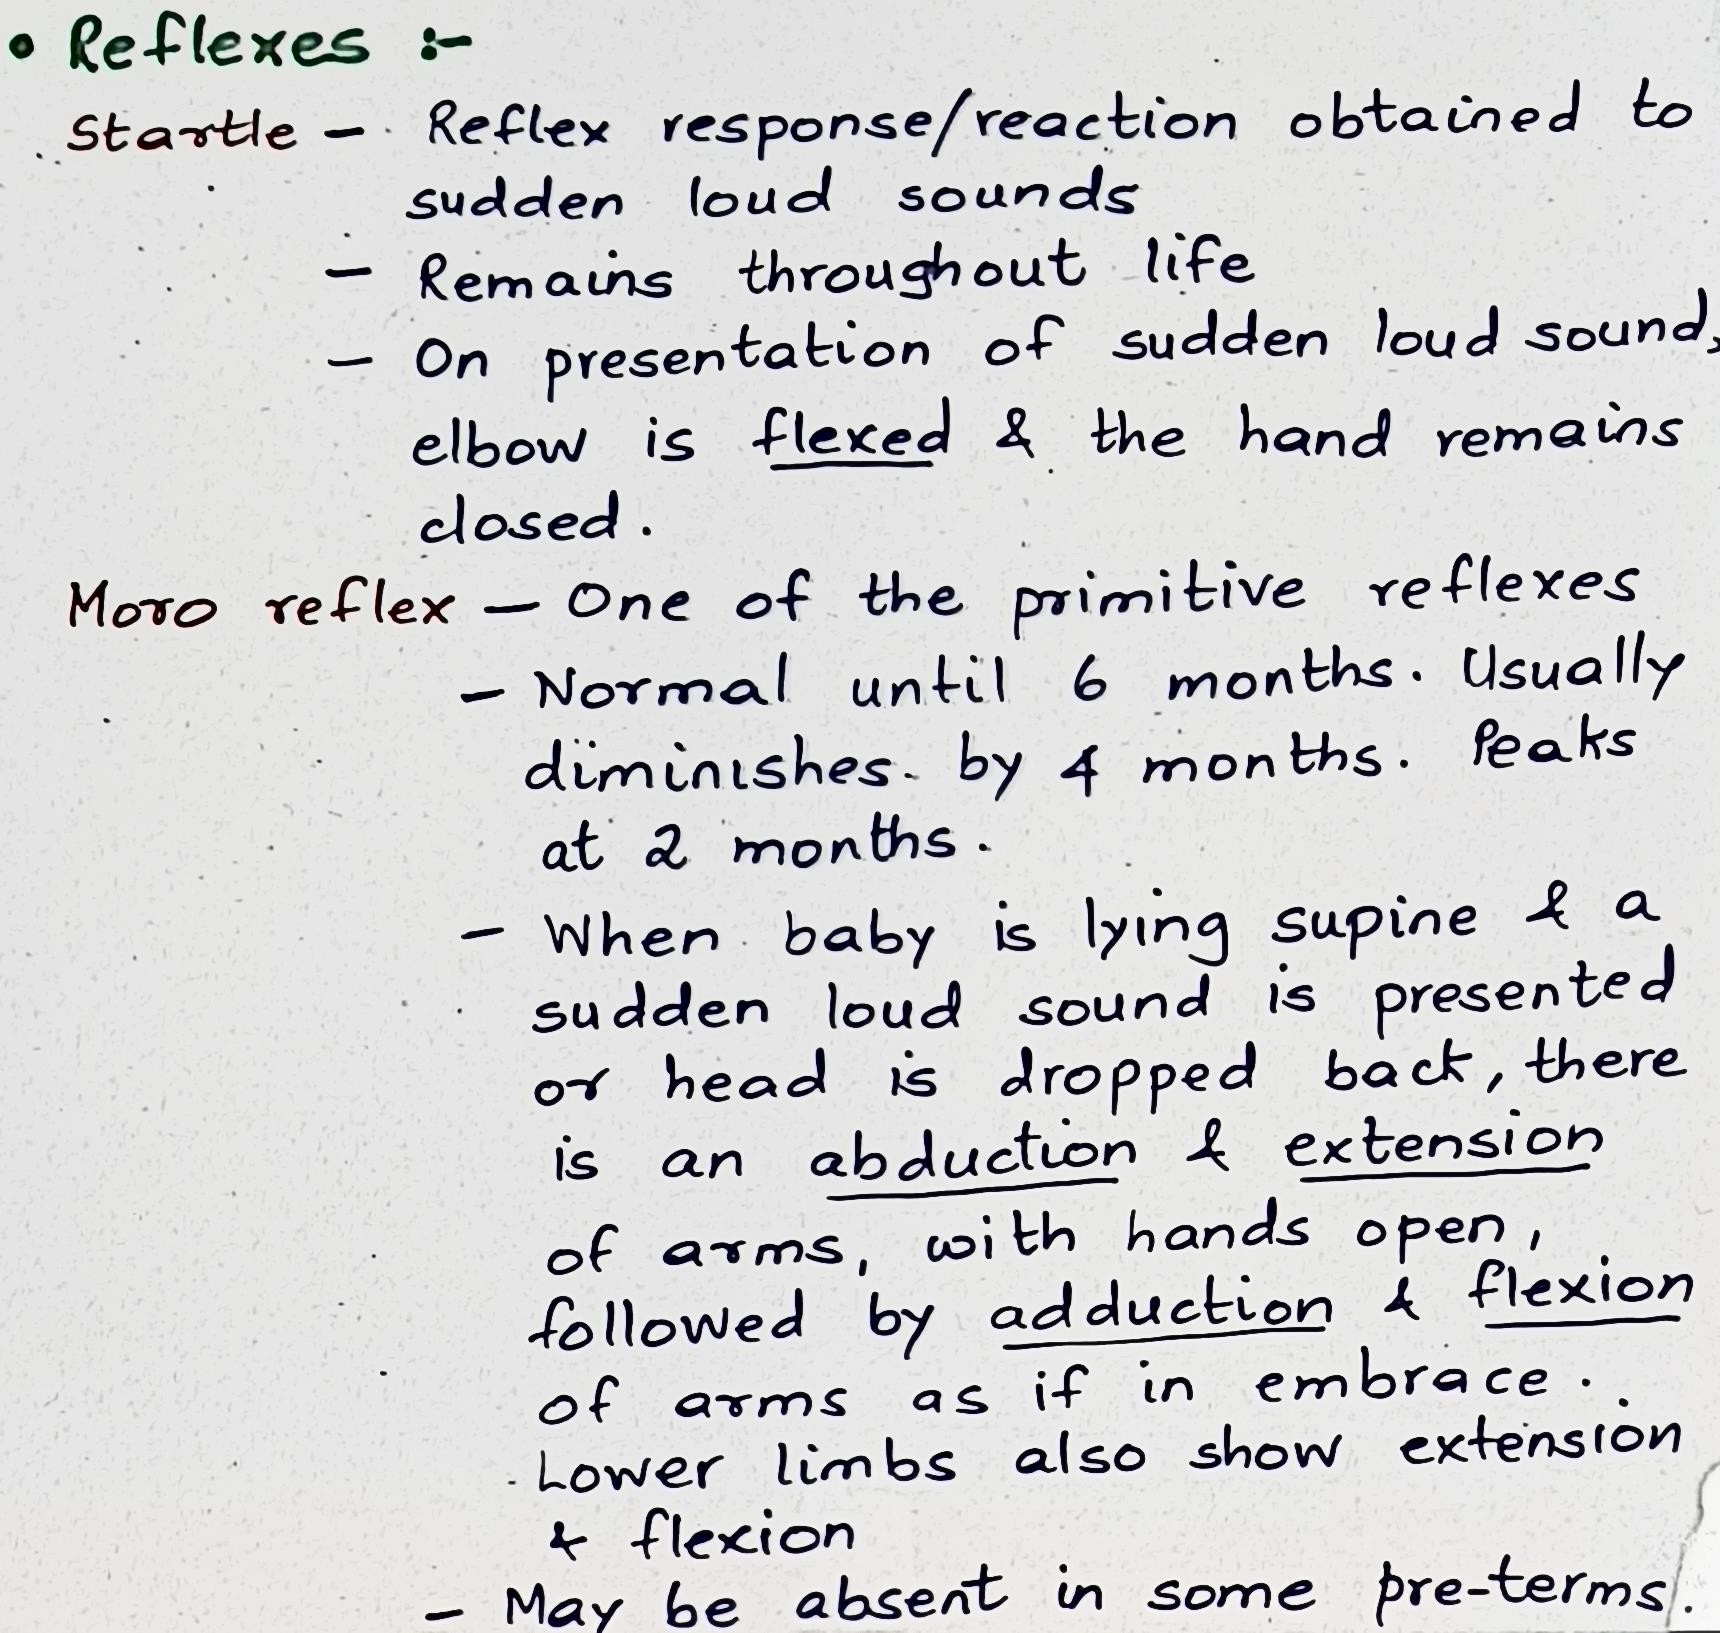 • Reflexes :-
Startle - Reflex response/reaction obtained to
sudden loud sounds
- Remains throughout life
- On presentation of sudden loud sound,
elbow is flexed & the hand remains
closed.
Moro reflex - One of the primitive reflexes
- Normal until 6 months. Usually
diminishes by 4 months. Peaks
at 2 months.
- When baby is lying supine & a
sudden loud sound is presented
or head is dropped back, there
is an abduction & extension
of arms, with hands open,
followed by adduction & flexion
of arms as if in embrace.
Lower limbs also show extension
& flexion
- May be absent in some pre-terms.